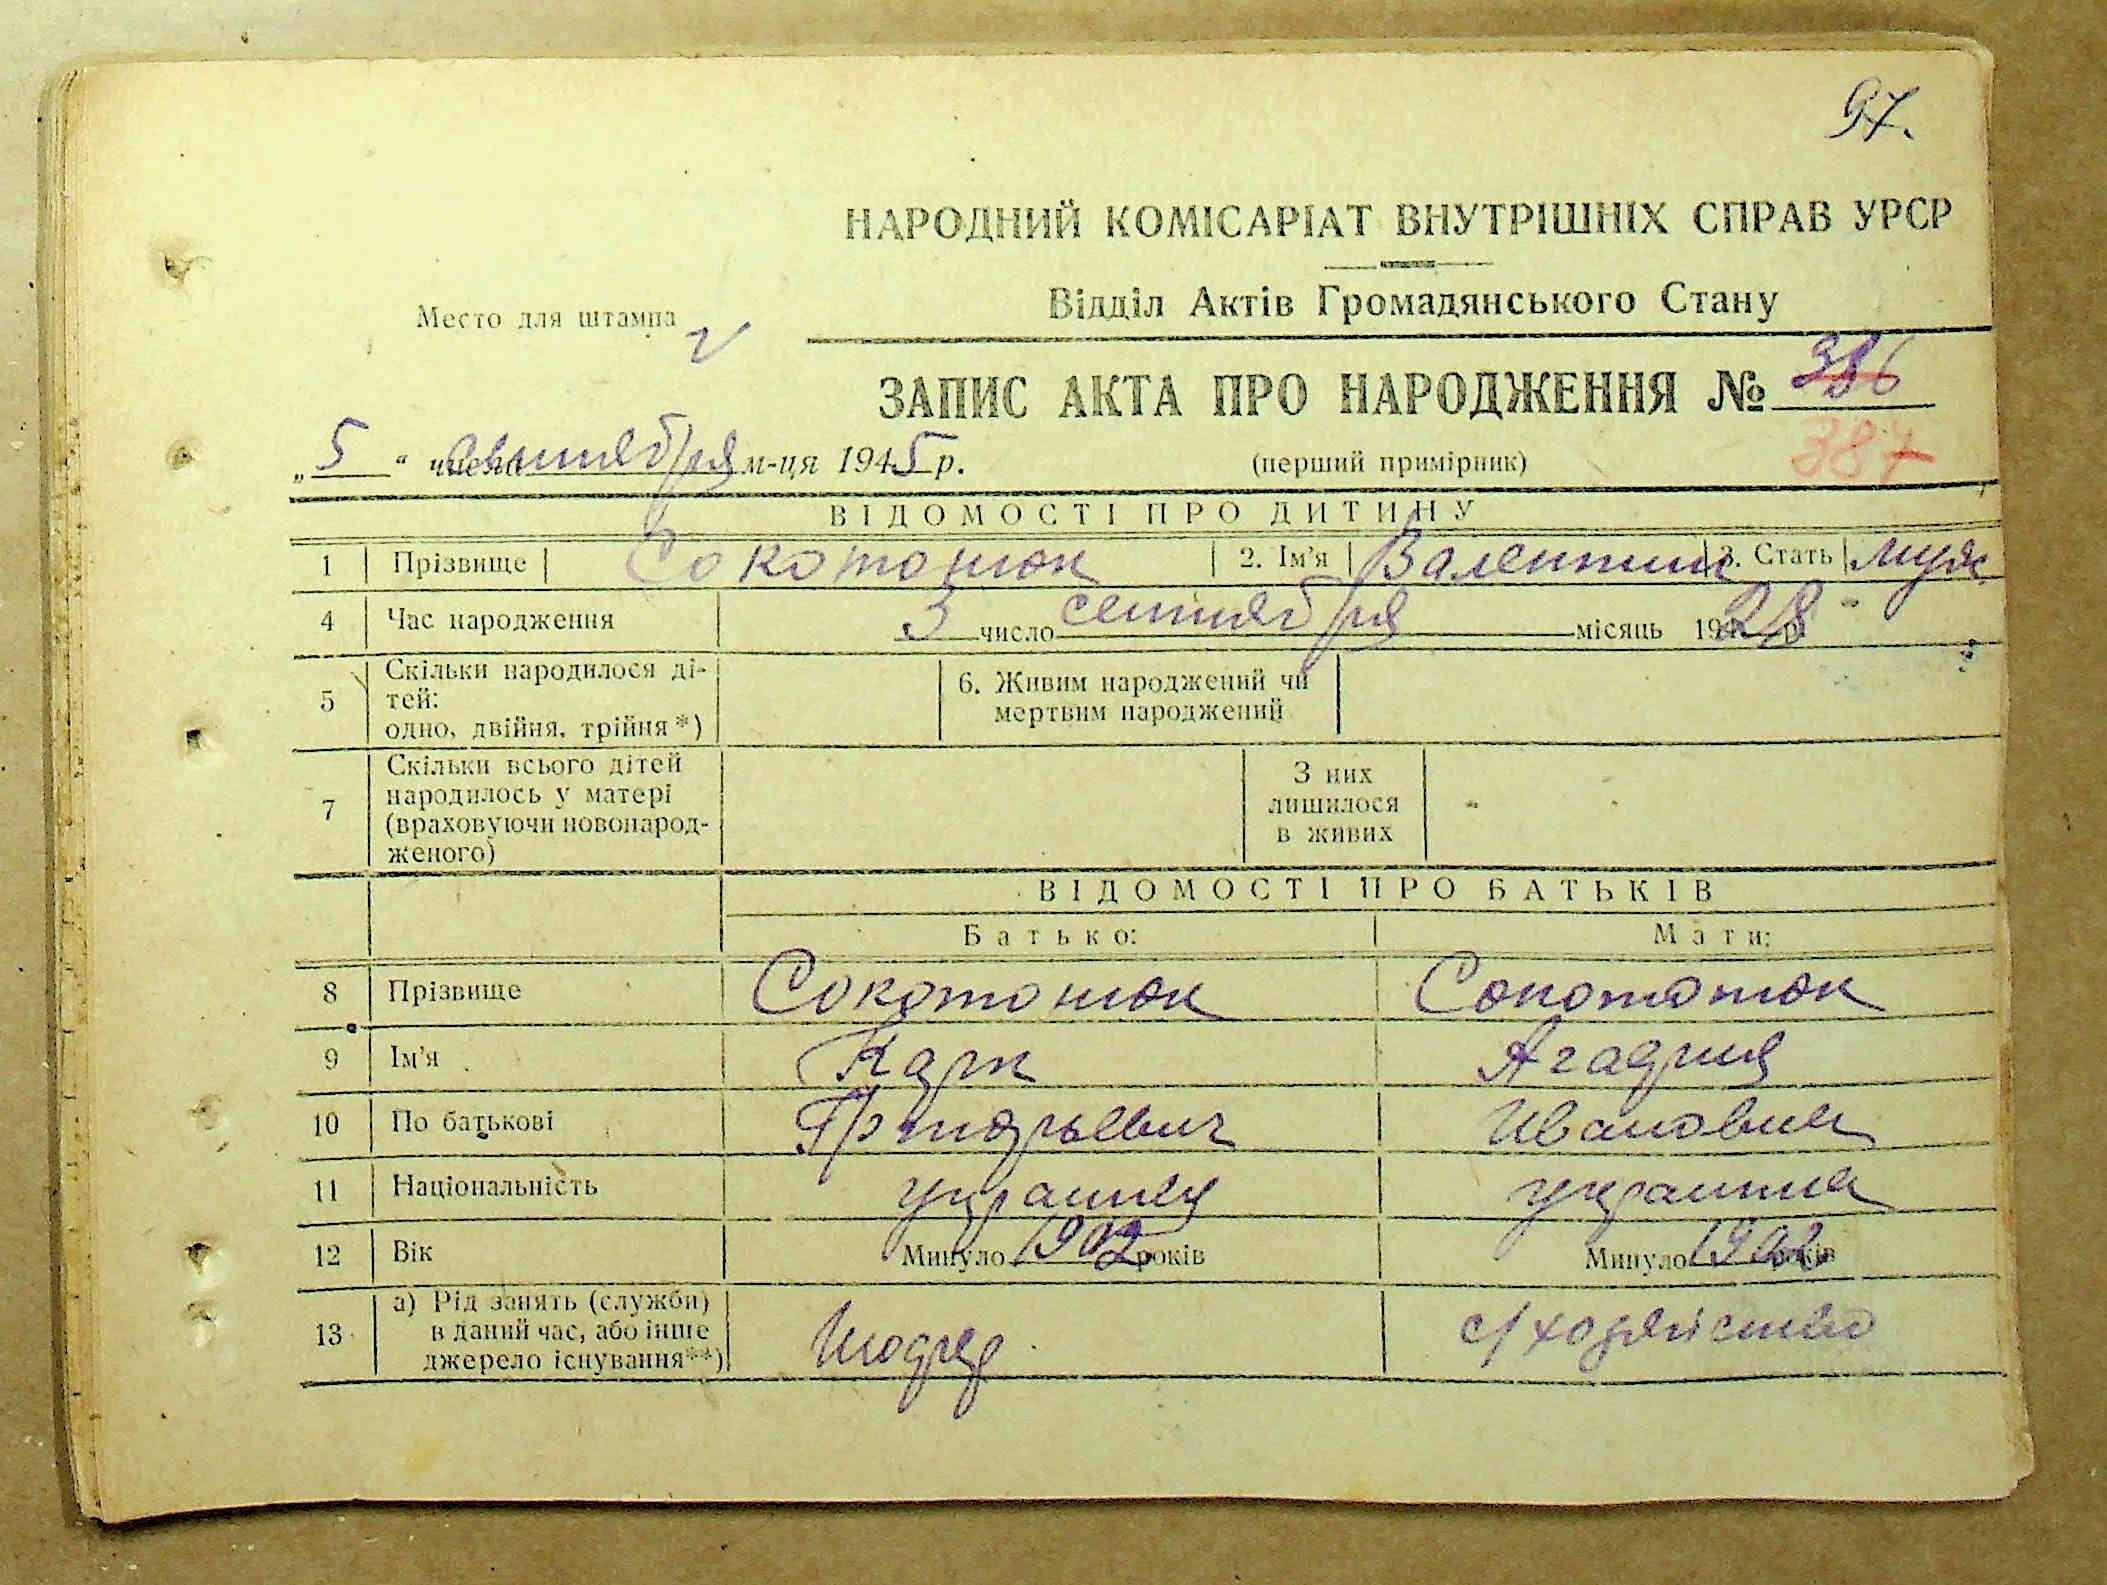 97.
НАРОДНИЙ КОМІСАРІАТ ВНУТРІШНІХ СПРАВ УРСР
Відділ Актів Громадянського Стану
Место для штампа
ЗАПИС АКТА ПРО НАРОДЖЕННЯ № 386
387
„5“ числа сентября м-ця 1945 р. (перший примірник)
ВІДОМОСТІ ПРО ДИТИНУ
1 Прізвище Сокотонюк 2. Ім'я Валентин 3. Стать муж
4 Час народження 3 число сентября місяць 1928 р
5 Скільки народилося ді-
тей:
одно, двійня, трійня*)
6. Живим народжений чи
мертвим народжений
7 Скільки всього дітей
народилось у матері
(враховуючи новонарод-
женого)
З них
лишилося
в живих
ВІДОМОСТІ ПРО БАТЬКІВ
Батько: Мати:
8 Прізвище Сокотонюк Сокотонюк
9 Ім'я Карп
10 По батькові Ивановна
11 Національність украинец украинка
12 Вік Минуло 1902 років Минуло 1902 років
13 а) Рід занять (служби)
в даний час, або інше
джерело існування**)
с/хозяйство